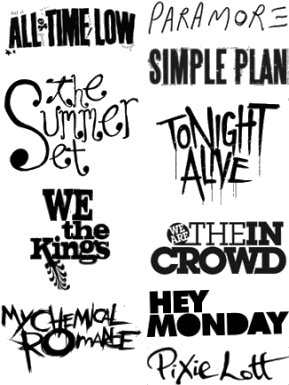 ALL TIME LOW
PARAMORE
SIMPLE PLAN
the
Summer
Set
TONIGHT
ALIVE
WE
the
Kings
WE ARE THE IN
CROWD
MY CHEMICAL
ROMANCE
HEY
MONDAY
Pixie Lott